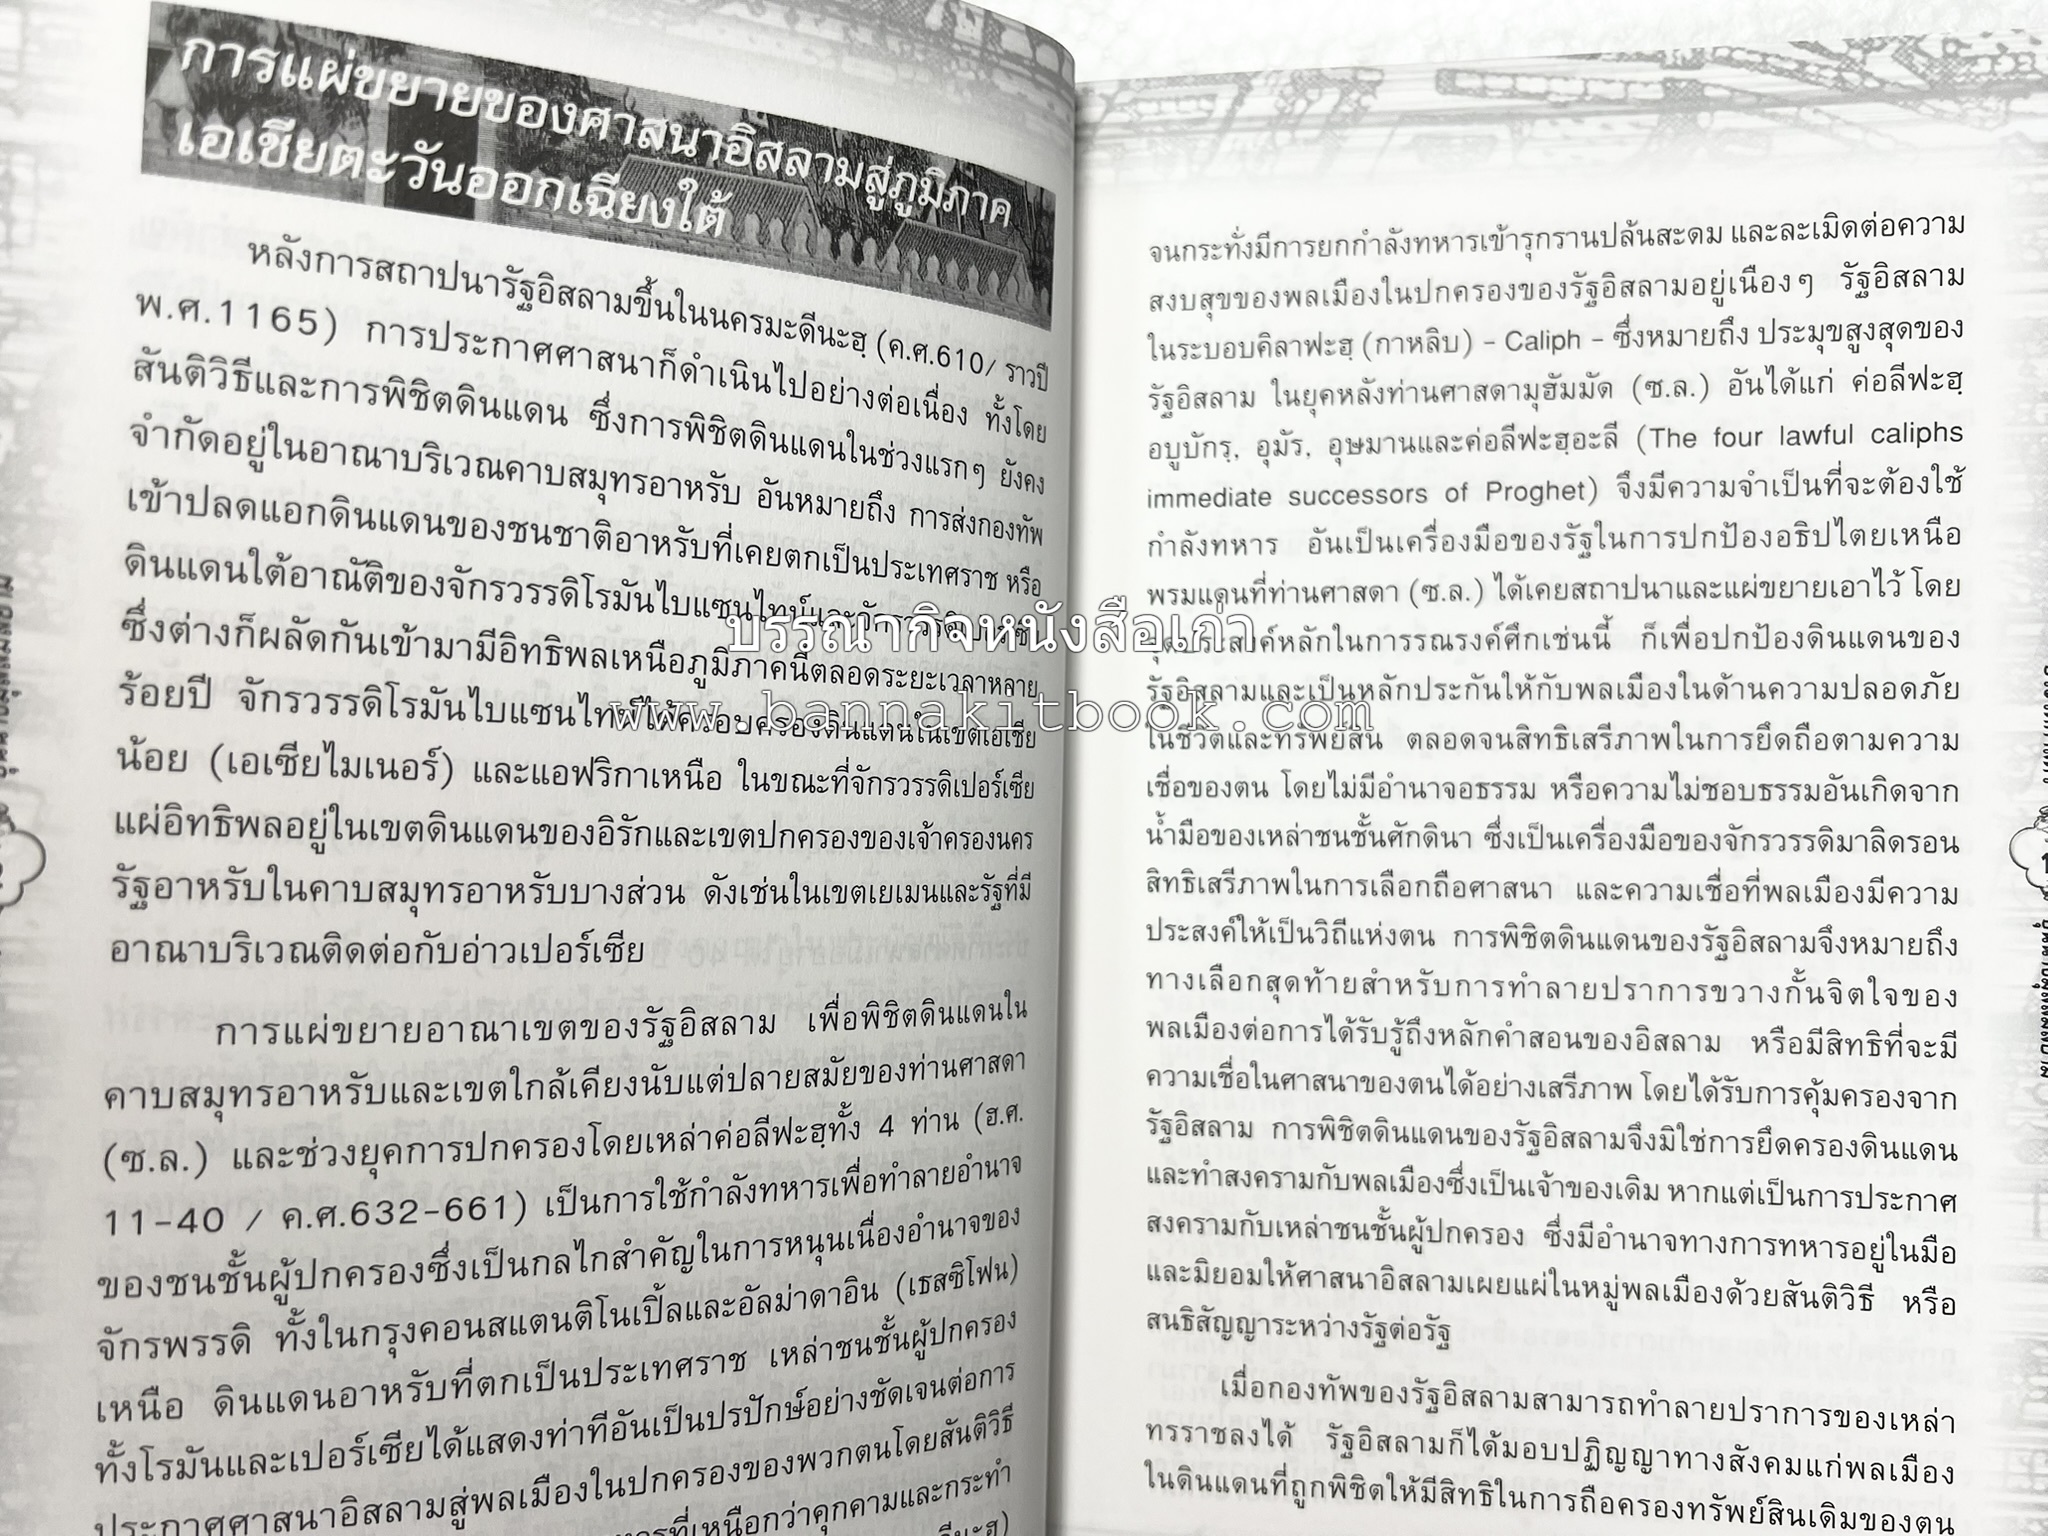 การแผ่ขยายของศาสนาอิสลามสู่ภูมิภาค
เอเชียตะวันออกเฉียงใต้
หลังการสถาปนารัฐอิสลามขึ้นในนครมะดีนะฮฺ (ค.ศ.610/ ราวปี
พ.ศ.1165) การประกาศศาสนาก็ดำเนินไปอย่างต่อเนื่อง ทั้งโดย
สันติวิธีและการพิชิตดินแดน ซึ่งการพิชิตดินแดนในช่วงแรกๆ ยังคง
จำกัดอยู่ในอาณาบริเวณคาบสมุทรอาหรับ อันหมายถึง การส่งกองทัพ
เข้าปลดแอกดินแดนของชนชาติอาหรับที่เคยตกเป็นประเทศราช หรือ
ดินแดนใต้อาณัติของจักรวรรดิโรมันไบแซนไทน์และจักรวรรดิเปอร์เซีย
ซึ่งต่างก็ผลัดกันเข้ามามีอิทธิพลเหนือภูมิภาคนี้ตลอดระยะเวลาหลาย
ร้อยปี จักรวรรดิโรมันไบแซนไทน์ได้ครอบครองดินแดนในเขตเอเชีย
น้อย (เอเซียไมเนอร์) และแอฟริกาเหนือ ในขณะที่จักรวรรดิเปอร์เซีย
แผ่อิทธิพลอยู่ในเขตดินแดนของอิรักและเขตปกครองของเจ้าครองนคร
รัฐอาหรับในคาบสมุทรอาหรับบางส่วน ดังเช่นในเขตเยเมนและรัฐที่มี
อาณาบริเวณติดต่อกับอ่าวเปอร์เซีย
การแผ่ขยายอาณาเขตของรัฐอิสลาม เพื่อพิชิตดินแดนใน
คาบสมุทรอาหรับและเขตใกล้เคียงนับแต่ปลายสมัยของท่านศาสดา
(ซ.ล.) และช่วงยุคการปกครองโดยเหล่าค่อลีฟะฮฺทั้ง 4 ท่าน (ฮ.ศ.
11-40 / ค.ศ.632-661) เป็นการใช้กำลังทหารเพื่อทำลายอำนาจ
ของชนชั้นผู้ปกครองซึ่งเป็นกลไกสำคัญในการหนุนเนื่องอำนาจของ
จักรพรรดิ ทั้งในกรุงคอนสแตนติโนเปิ้ลและอัลม่าดาอิน (เธสซิโฟน)
เหนือ ดินแดนอาหรับที่ตกเป็นประเทศราช เหล่าชนชั้นผู้ปกครอง
ทั้งโรมันและเปอร์เซียได้แสดงท่าทีอันเป็นปรปักษ์อย่างชัดเจนต่อการ
ประกาศศาสนาอิสลามสู่พลเมืองในปกครองของพวกตนโดยสันติวิธี
ที่เหนือกว่าคุกคามและกระทำ
จนกระทั่งมีการยกกำลังทหารเข้ารุกรานปล้นสะดม และละเมิดต่อความ
สงบสุขของพลเมืองในปกครองของรัฐอิสลามอยู่เนืองๆ รัฐอิสลาม
ในระบอบคิลาฟะฮฺ (กาหลิบ) – Caliph – ซึ่งหมายถึง ประมุขสูงสุดของ
รัฐอิสลาม ในยุคหลังท่านศาสดามุฮัมมัด (ซ.ล.) อันได้แก่ ค่อลีฟะฮฺ
อบูบักรฺ, อุมัร, อุษมานและค่อลีฟะฮฺอะลี (The four lawful caliphs
immediate successors of Proghet) จึงมีความจำเป็นที่จะต้องใช้
กำลังทหาร อันเป็นเครื่องมือของรัฐในการปกป้องอธิปไตยเหนือ
พรมแดนที่ท่านศาสดา (ซ.ล.) ได้เคยสถาปนาและแผ่ขยายเอาไว้ โดย
จุดประสงค์หลักในการรณรงค์ศึกเช่นนี้ ก็เพื่อปกป้องดินแดนของ
รัฐอิสลามและเป็นหลักประกันให้กับพลเมืองในด้านความปลอดภัย
ในชีวิตและทรัพย์สิน ตลอดจนสิทธิเสรีภาพในการยึดถือตามความ
เชื่อของตน โดยไม่มีอำนาจอธรรม หรือความไม่ชอบธรรมอันเกิดจาก
น้ำมือของเหล่าชนชั้นศักดินา ซึ่งเป็นเครื่องมือของจักรวรรดิมาลิดรอน
สิทธิเสรีภาพในการเลือกถือศาสนา และความเชื่อที่พลเมืองมีความ
ประสงค์ให้เป็นวิถีแห่งตน การพิชิตดินแดนของรัฐอิสลามจึงหมายถึง
ทางเลือกสุดท้ายสำหรับการทำลายปราการขวางกั้นจิตใจของ
พลเมืองต่อการได้รับรู้ถึงหลักคำสอนของอิสลาม หรือมีสิทธิที่จะมี
ความเชื่อในศาสนาของตนได้อย่างเสรีภาพ โดยได้รับการคุ้มครองจาก
รัฐอิสลาม การพิชิตดินแดนของรัฐอิสลามจึงมิใช่การยึดครองดินแดน
และทำสงครามกับพลเมืองซึ่งเป็นเจ้าของเดิม หากแต่เป็นการประกาศ
สงครามกับเหล่าชนชั้นผู้ปกครอง ซึ่งมีอำนาจทางการทหารอยู่ในมือ
และมิยอมให้ศาสนาอิสลามเผยแผ่ในหมู่พลเมืองด้วยสันติวิธี หรือ
สนธิสัญญาระหว่างรัฐต่อรัฐ
เมื่อกองทัพของรัฐอิสลามสามารถทำลายปราการของเหล่า
ทรราชลงได้ รัฐอิสลามก็ได้มอบปฏิญญาทางสังคมแก่พลเมือง
ในดินแดนที่ถูกพิชิตให้มีสิทธิในการถือครองทรัพย์สินเดิมของตน
บรรณากิจหนังสือเก่า
www.bannakitbook.com